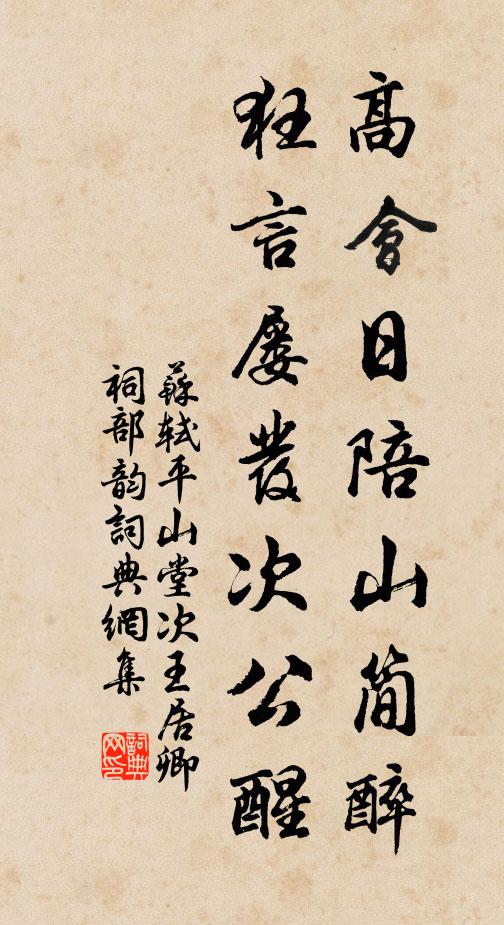 高會日陪山簡醉
狂言屢發次公醒
蘇軾平山堂次王居卿
祠部韵詞典網集
詞典网印